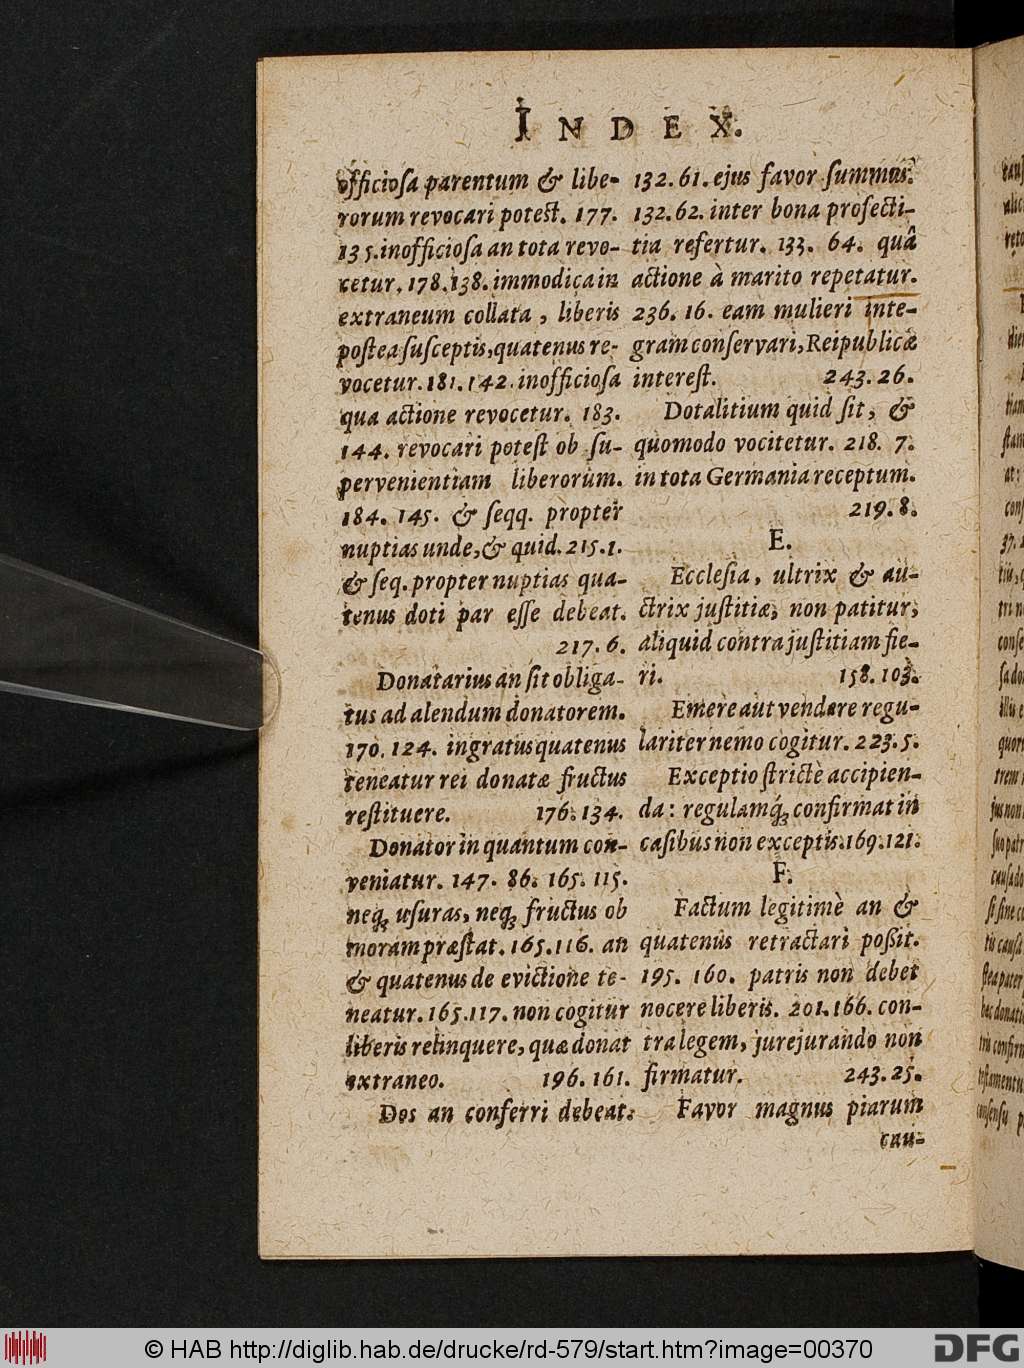 INDEX.
officiosa parentum & libe-
rorum revocari potest. 177.
135. inofficiosa an tota revo-
cetur. 178. 138. immodica in
extraneum collata, liberis
postea susceptis, quatenus re-
vocetur. 181. 142. inofficiosa
qua actione revocetur. 183.
144. revocari potest ob su-
pervenientiam liberorum.
184. 145. & seqq. propter
nuptias unde, & quid. 215. 1.
& seq. propter nuptias qua-
tenus doti par esse debeat.
217. 6.
Donatarius an sit obliga-
tus ad alendum donatorem.
170. 124. ingratus quatenus
teneatur rei donatæ fructus
restituere. 176. 134.
Donator in quantum con-
veniatur. 147. 86. 165. 115.
neq; usuras, neq; fructus ob
moram præstat. 165. 116. an
& quatenus de evictione te-
neatur. 165. 117. non cogitur
liberis relinquere, quæ donat
extraneo. 196. 161.
Dos an conferri debeat.
132. 61. ejus favor summus.
132. 62. inter bona profecti-
tia refertur. 133. 64. quâ
actione à marito repetatur.
236. 16. eam mulieri inte-
gram conservari, Reipublicæ
interest. 243. 26.
Dotalitium quid sit, &
quomodo vocitetur. 218. 7.
in tota Germania receptum.
219. 8.
E.
Ecclesia, ultrix & au-
ctrix justitiæ, non patitur,
aliquid contra justitiam fie-
ri. 158. 103.
Emere aut vendere regu-
lariter nemo cogitur. 223. 5.
Exceptio strictè accipien-
da: regulamq́; confirmat in
casibus non exceptis. 169. 121.
F.
Factum legitimè an &
quatenus retractari poßit.
195. 160. patris non debet
nocere liberis. 201. 166. con-
tra legem, jurejurando non
firmatur. 243. 25.
Favor magnus piarum
cau-
© HAB http://diglib.hab.de/drucke/rd-579/start.htm?image=00370
DFG